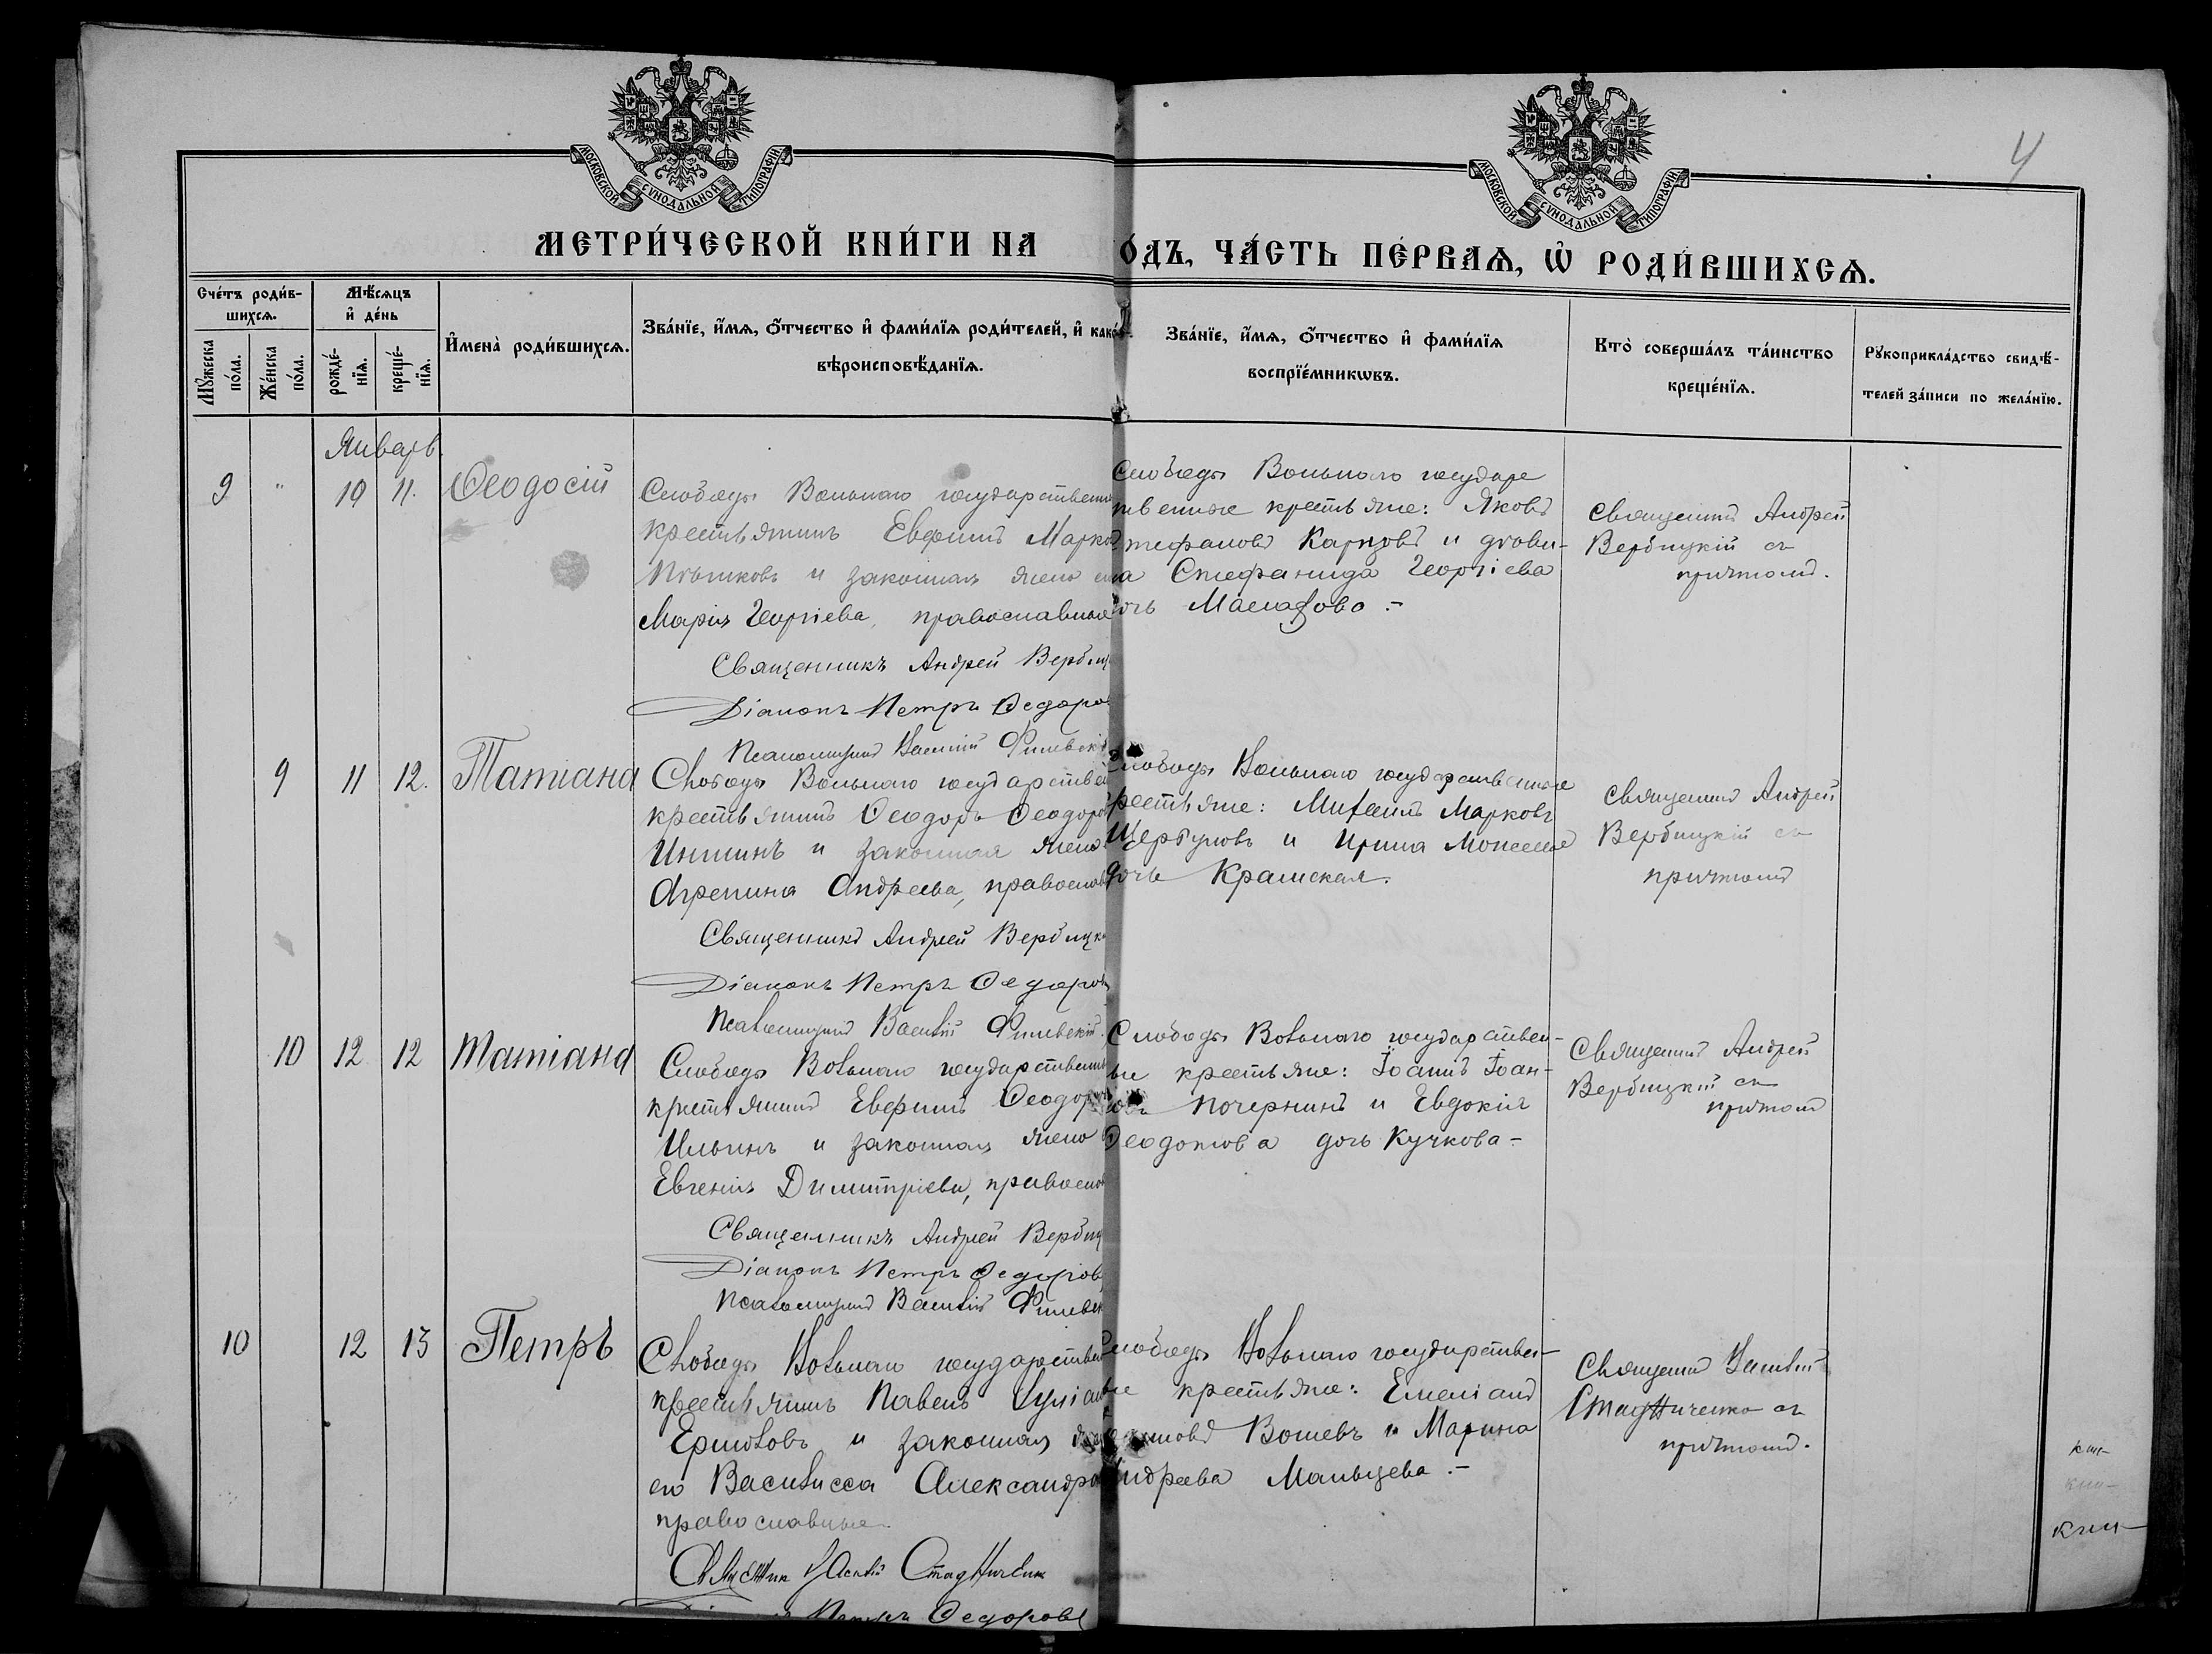 4
МОСКОВСКОЙ СѴНОДАЛЬНОЙ ТИПОГРАФІИ
МОСКОВСКОЙ СѴНОДАЛЬНОЙ ТИПОГРАФІИ
МЕТРИ́ЧЕСКОЙ КНИ́ГИ НА
О́ДЪ, ЧА́СТЬ ПЕ́РВАѦ, Ѡ҆ РОДИ́ВШИХСѦ.
Сче́тъ роди́в-
шихсѧ.
Мꙋ́жеска по́ла.
Же́нска по́ла.
Мѣ́сѧцъ
и҆ де́нь
рожде́-нїѧ.
креще́-нїѧ.
И҆мена̀ роди́вшихсѧ.
Зва́нїе, и҆́мѧ, ѻ҆́тчество и҆ фами́лїѧ роди́телей, и҆ како́-
вѣроисповѣ́данїѧ.
Зва́нїе, и҆́мѧ, ѻ҆́тчество и҆ фами́лїѧ
воспрїе́мникѡвъ.
Кто̀ соверша́лъ та́инство
креще́нїѧ.
Рꙋкоприкла́дство свидѣ́-
телей за́писи по жела́нїю.
Январь
9 " 10 11. Ѳеодосій
Слободы Вольнаго государственн
крестьянинъ Евфимъ Марков
и законная жена ег
Марія Георгіева, православные
Священникъ Андрей Вербиц
Діаконъ Петръ Ѳедоров
Псаломщикъ Василій
Слободы Вольнаго государс
твенные крестьяне: Яковъ
тефановъ Карповъ и дѣви-
а Стефанида Георгіева
очь
Священникъ Андрей
Вербицкій съ
причтомъ.
9 11 12. Татіана
Слободы Вольнаго государствен
крестьянинъ Ѳеодоръ Ѳеодоров
и законная жена
Агрепина Андреева, православ
Священникъ Андрей Вербицк
Діаконъ Петръ Ѳедоров
Псаломщикъ Василій
Слободы Вольнаго государственные
рестьяне: Михаилъ Марковъ
Щербуновъ и Ирина
дочь Крамская.
Священникъ Андрей
Вербицкій съ
причтомъ
10 12 12 Татіана
Слободы Вольнаго государственн
крестьянинъ Евфимъ Ѳеодоров
Ильинъ и законная жена
Евгенія Димитріева, православ
Священникъ Андрей Вербиц
Діаконъ Петръ Ѳедоров
Псаломщикъ Василій
Слободы Вольнаго государствен-
ые крестьяне: Іоаннъ Іоан-
новъ Почернинъ и Евдокія
Ѳеодотова дочь Кучкова-
Священникъ Андрей
Вербицкій съ
причтомъ
10 12 13 Петръ
Слободы Вольнаго государствен
крестьянинъ Павелъ
Ермоловъ и законная жена
его Василисса Александро
православные.
Василій
Петръ Ѳедоровъ
Слободы Вольнаго государствен-
ые крестьяне: Емеліанъ
Вошевъ и Марина
Андреева Мальцева.-
Священникъ Василій
Стадниченко съ
причтомъ.